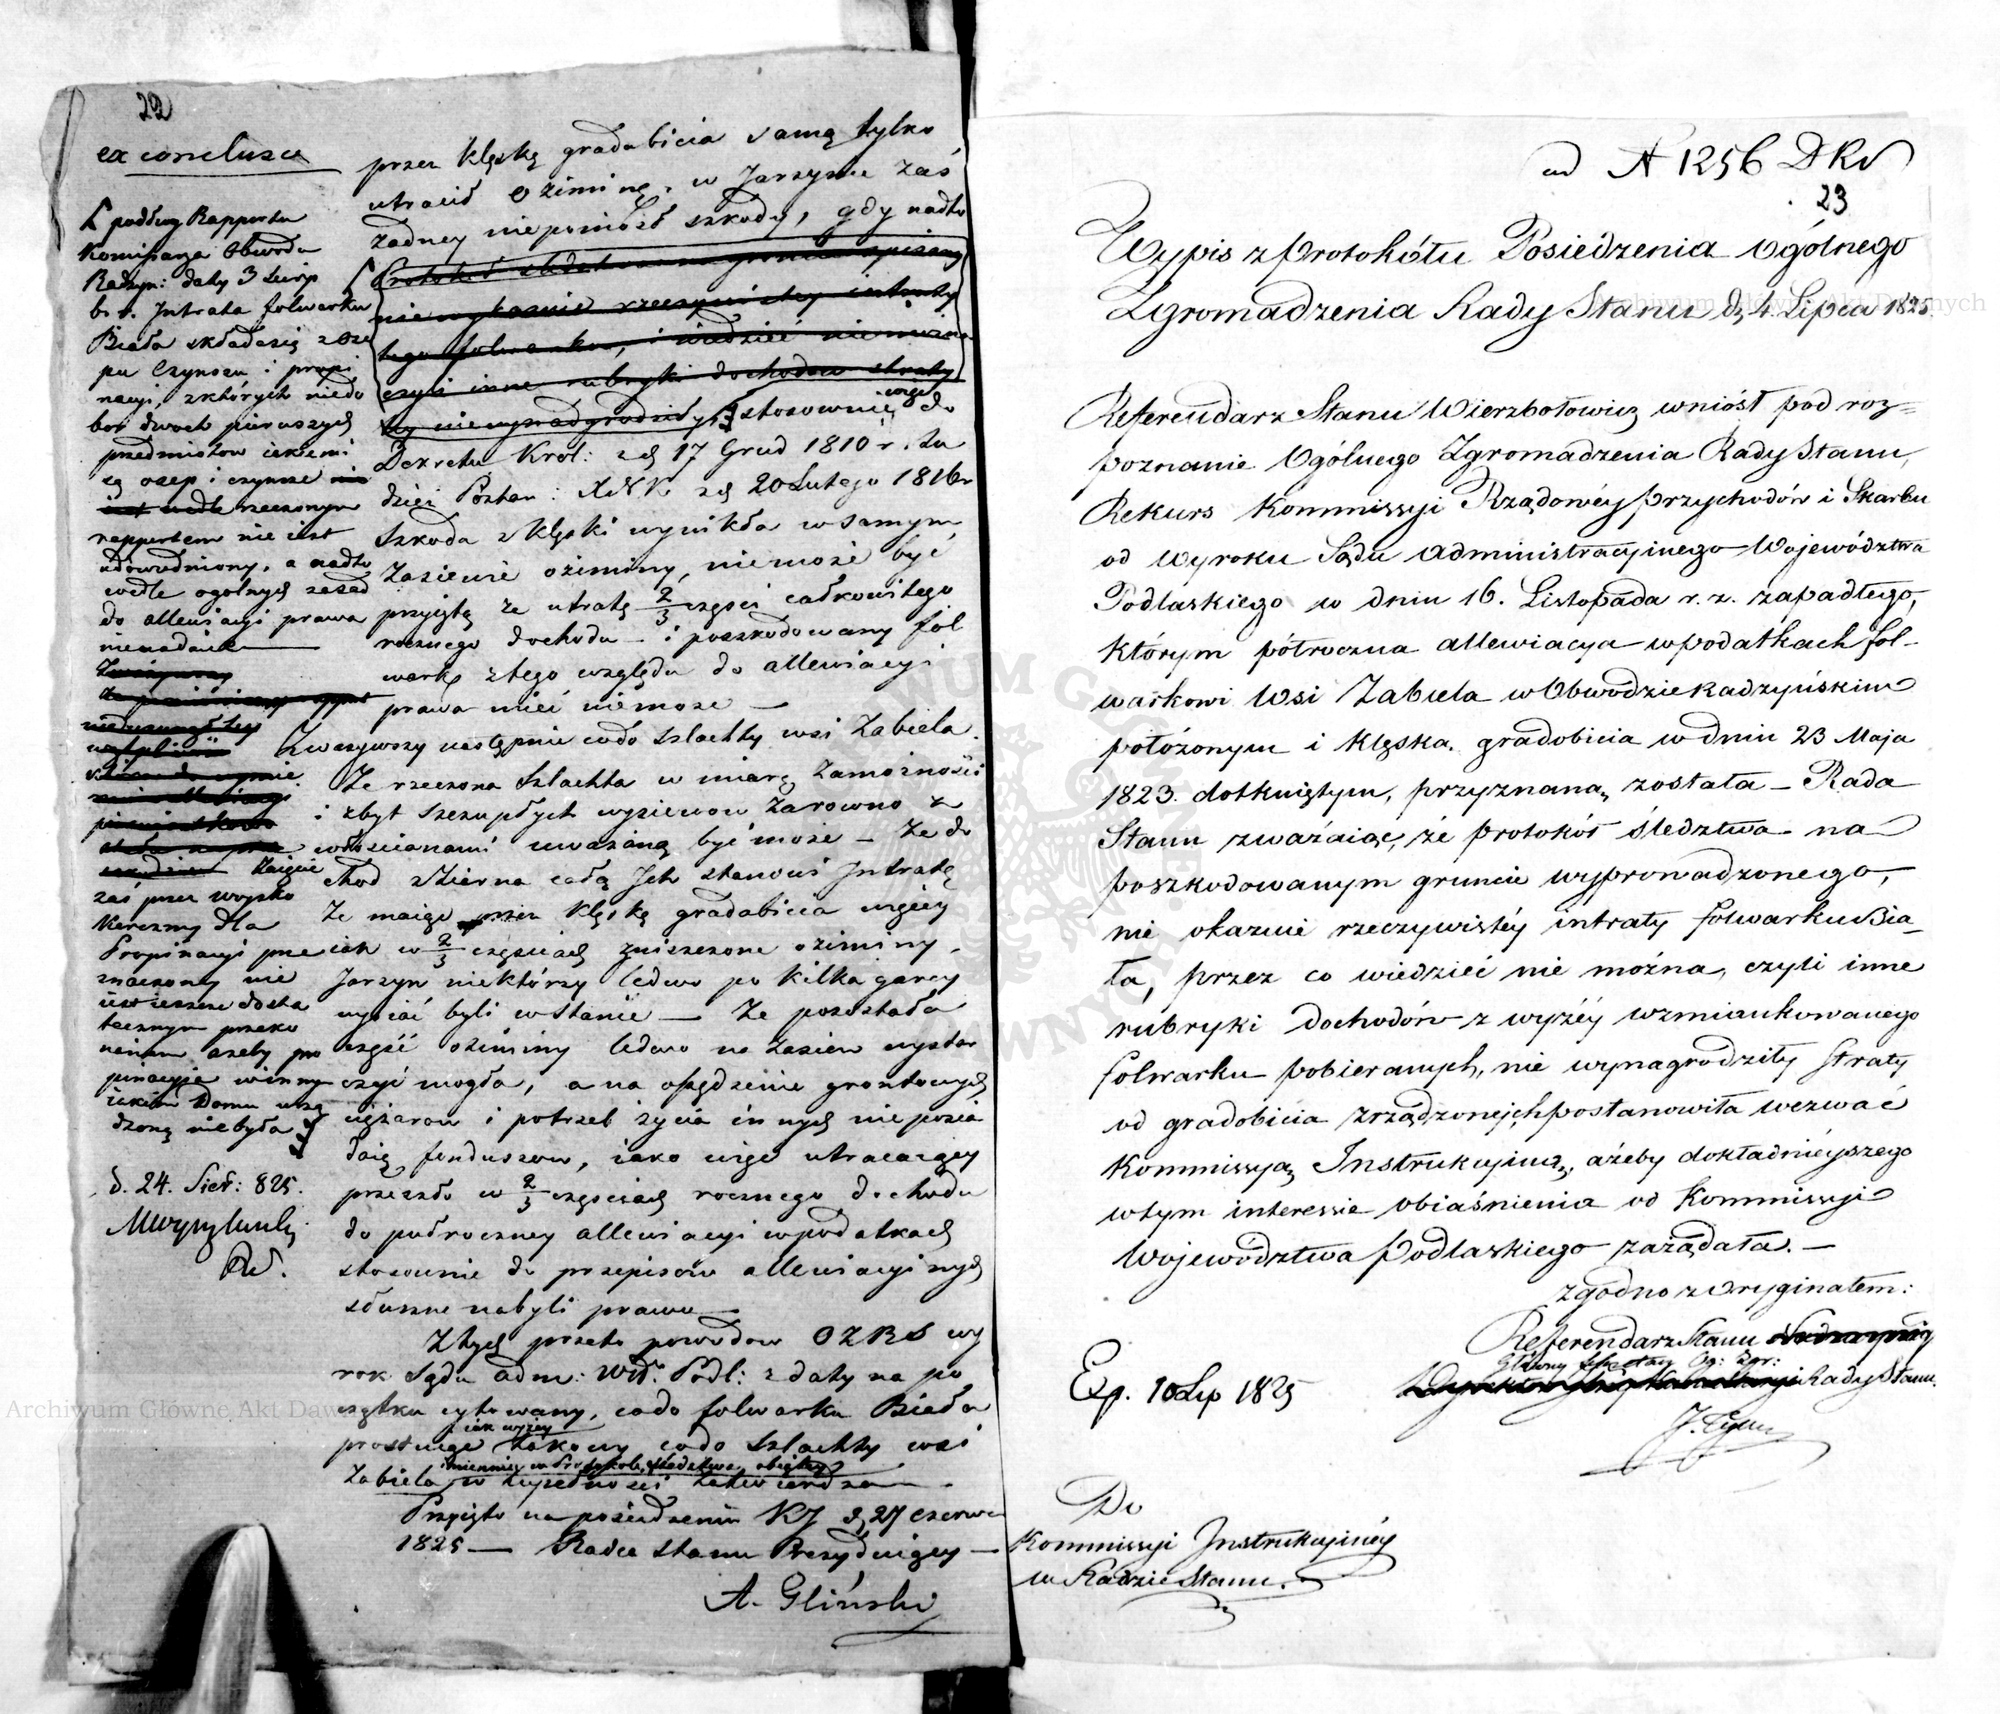 22
ex conclusu
podług Rapportu
Kommisarza Obwodu
Radzyn: daty 3 Sierp
b. r. Intrata folwarku
Biała składa się z Osepu
Czynszu i propi
nacyi, z których niedo
bor dwoch pierwszych
przedmiotow iakiemi
są osep i czynsze
wedle rzeczonym
rapportem nie iest
udowodniony, a nadto
wedle ogolnych zasad
do allewiacyi prawa
nienadaie
Zaięcie
zaś przez woysko
Karczmy dla
Propinacyi prze
znaczony nie
iest ieszcze dosta
tecznym przeko
naniem azeby pro
pinacyia w inny
iakim Domu urzą
dzoną niebyła
d. 24. Sier: 825.
przez klęskę gradobicia samą tylko
utracił oziminę, w Jarzynie zaś
żadney nieponiosł szkody, gdy nadto
Protokół śledztwa na gruncie spisany
nie wykazuie rzeczywistey intraty
tego folwarku, i wiedzieć nie można
czyli inne rubryki dochodow straty
tey niewynadgrodziły stosownie do
Dekretu Król: z d 17 Grud 1810 r. tu
dzież Postan: X N K z d 20 Lutego 1816 r
szkoda z klęski wynikła w samym
zasiewie oziminy, niemoże być
przyiętą za utratę 2/3 części całkowitego
rocznego dochodu — i poszkodowany fol
wark z tego względu do allewiacyi
prawa mieć niemoże —
Zwazywszy następnie codo szlachty wsi Zabiela
Ze rzeczona Szlachta w miarę zamożności
i zbyt szczupłych wysiewow zarowno z
włościanami uważaną być może — Ze do
chod z Ziarna całą Ich stanowi Intratę
Ze maiąc przez klęskę gradobicia więcey
iak w 2/3 częściach zniszczone oziminy,
Jarzyn niektórzy ledwo po kilka garcy
wysiać byli w stanie — Ze pozostała
część oziminy ledwo na zasiew wystar
czyć mogła, a na opędzenie gruntowych
ciężarow i potrzeb życia innych nie posia
daią funduszow, iako więc utracaiący
przeszło w 2/3 częściach rocznego dochodu
do pułroczney allewiacyi w podatkach
stosownie do przepisow allewiacyinych
słuszne nabyli prawo —
Z tych przeto powodow OZRS wy
rok Sądu adm: Wdz. Podl: z daty na po
czątku cytowany, codo folwarku Biała
iak wyżey
prostuiąc takowy codo Szlachty wsi
imiennie w Protokole śledztwa obiętey
Zabiela w zupełności zatwierdza —
Przyięto na posiedzeniu KJ d. 27 Czerwca
1825 — Radca Stanu Prezyduiący —
A. Gliński
ad N 1256 DKJ
23
Wypis z Protokółu Posiedzenia Ogólnego
Zgromadzenia Rady Stanu dą 4 Lipca 1825.
Referendarz Stanu Wierzbołowicz wniósł pod roz=
poznanie Ogólnego Zgromadzenia Rady Stanu,
Rekurs Kommissyi Rządowéy Przychodów i Skarbu
od Wyroku Sądu Administracyinego Województwa
Podlaskiego w dniu 16. Listopada r. z. zapadłego,
którym półroczna allewiacya w podatkach fol-
warkowi Wsi Zabiela w Obwodzie Radzyńskim
położonym i klęską gradobicia w dniu 23 Maja
1823. dotkniętym, przyznaną została — Rada
Stanu zważaiąc, że protokół śledztwa na
poszkodowanym gruncie wyprowadzonego,
nie okazuie rzeczywistéy intraty folwarku Bia-
ła, przez co wiedzieć nie można, czyli inne
rubryki dochodów z wyżéy wzmiankowanego
folwarku pobieranych, nie wynagrodziły straty
od gradobicia zrządzonéj, postanowiła wezwać
Kommissyą Instrukcyiną, ażeby dokładniéyszego
w tym interessie obiaśnienia od Kommissyi
Województwa Podlaskiego zażądała. —
zgodno z Oryginałem:
Referendarz Stanu
Główny Sekretarz Og: Zgr:
Rady Stanu.
Exp. 10 Lip 1825
Do
Kommissyi Instrukcyinéy
w Radzie Stanu.
Archiwum Główne Akt Dawnych